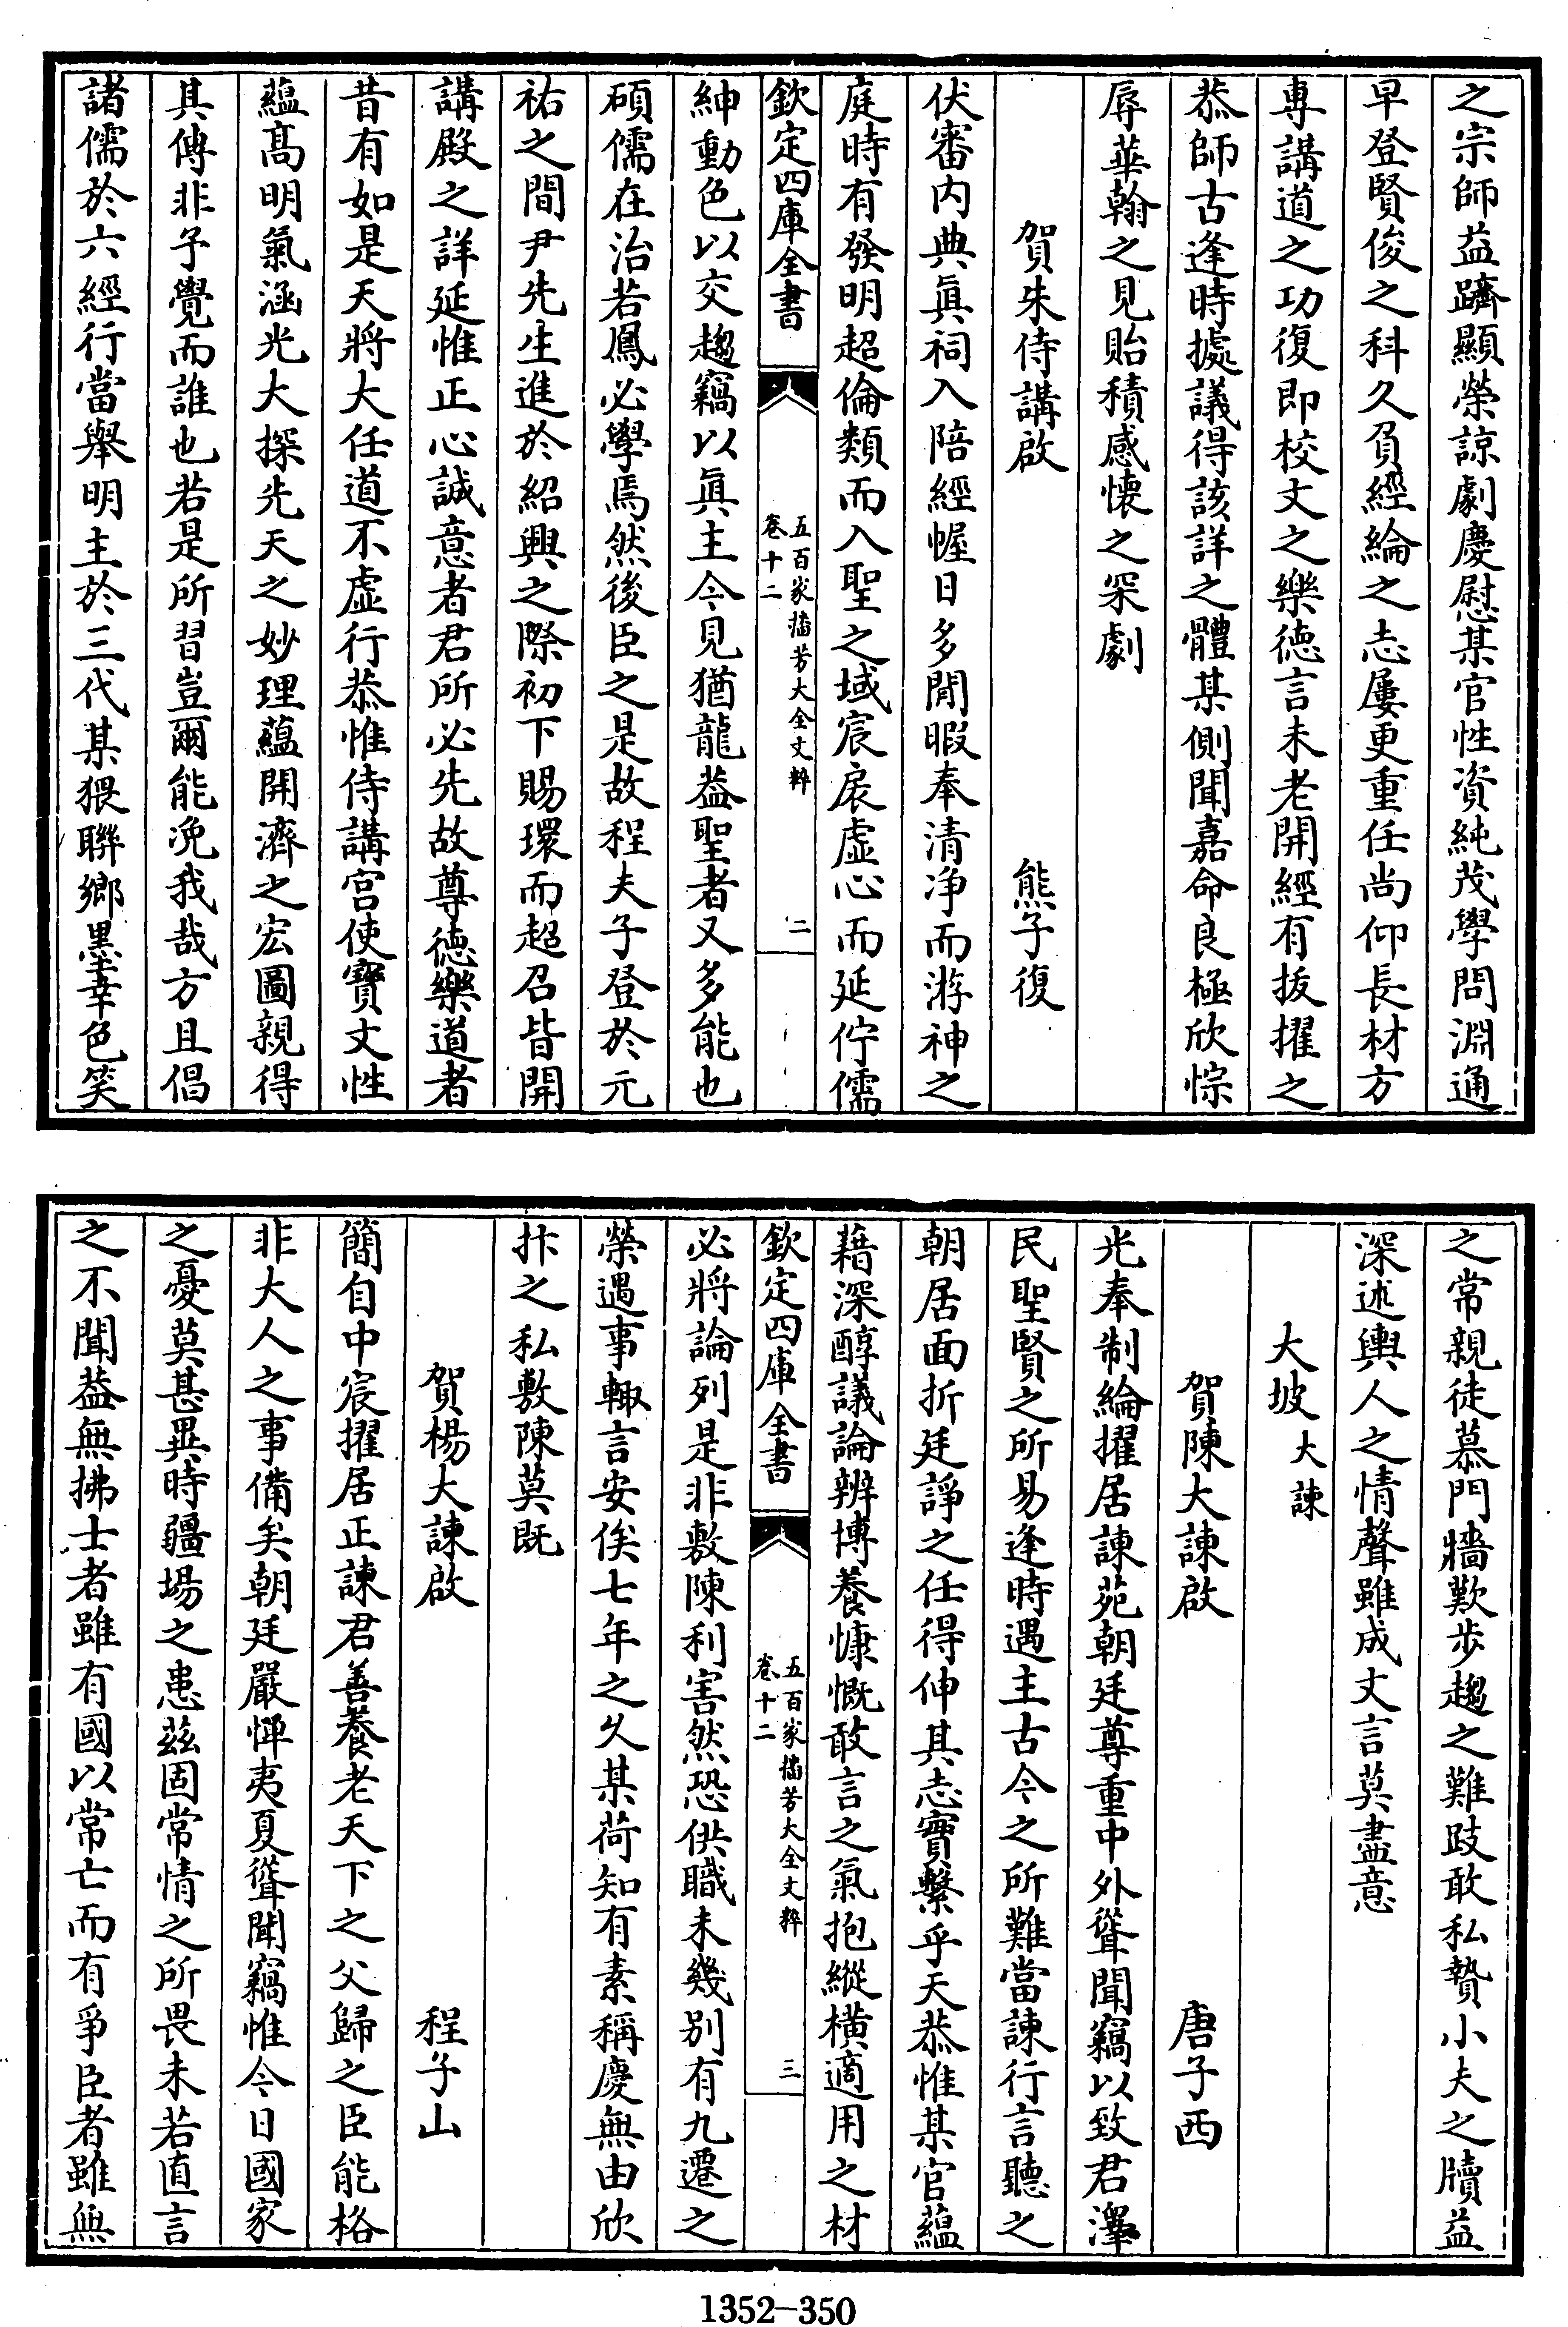 之宗師益躋顯榮諒劇慶慰某官性資純茂學問淵通
早登賢俊之科久負經綸之志屢更重任尚仰長材方
專講道之功復即校文之樂徳言未老開經有拔擢之
恭師古逢時據議得該詳之體某側聞嘉命良極欣悰
辱華翰之見貽積感懐之深劇
賀朱侍講啟 熊子復
伏審内典真祠入陪經幄日多閒暇奉清浄而游神之
庭時有發明超倫類而入聖之域宸扆虛心而延佇儒
欽定四庫全書 五百家播芳大全文粹 卷十二 二
紳動色以交趨竊以真主今見猶龍葢聖者又多能也
碩儒在治若鳳必學焉然後臣之是故程夫子登於元
祐之間尹先生進於紹興之際初下賜環而超召皆開
講殿之詳延惟正心誠意者君所必先故尊徳樂道者
昔有如是天將大任道不虛行恭惟侍講宮使寳文性
蘊髙明氣涵光大探先天之妙理蘊開濟之宏圖親得
其傳非予覺而誰也若是所習豈爾能浼我哉方且倡
諸儒於六經行當舉明主於三代某猥聯鄉黒幸色笑
之常親徒慕門牆歎步趨之難跂敢私贄小夫之牘益
深述輿人之情聲雖成文言莫盡意
大坡 大諫
賀陳大諫啟 唐子西
光奉制綸擢居諫苑朝廷尊重中外聳聞竊以致君澤
民聖賢之所易逢時遇主古今之所難當諫行言聽之
朝居面折廷諍之任得伸其志實繫乎天恭惟某官蘊
藉深醇議論辨博養慷慨敢言之氣抱縱横適用之材
欽定四庫全書 五百家播芳大全文粹 卷十二 三
必將論列是非敷陳利害然恐供職未幾别有九遷之
榮遇事輙言安俟七年之久某荷知有素稱慶無由欣
抃之私敷陳莫既
賀楊大諫啟 程子山
簡自中宸擢居正諫君善養老天下之父歸之臣能格
非大人之事備矣朝廷嚴憚夷夏聳聞竊惟今日國家
之憂莫甚異時疆埸之患兹固常情之所畏未若直言
之不聞葢無拂士者雖有國以常亡而有爭臣者雖無
1352－350